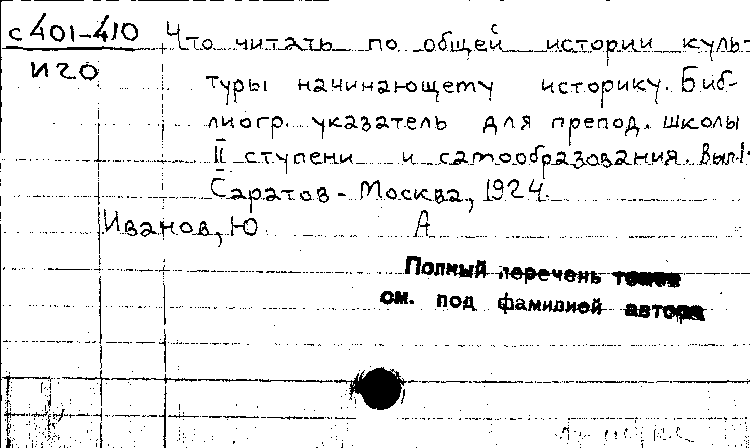 с 401-410
И20
Что читать по общей истории куль-
туры начинающему историку. Биб-
лиогр. указатель для препод. школы
II ступени и самообразования. Вып.1.
Саратов - Москва, 1924.
Иванов, Ю А
Полный перечень томов
см. под фамилией автора